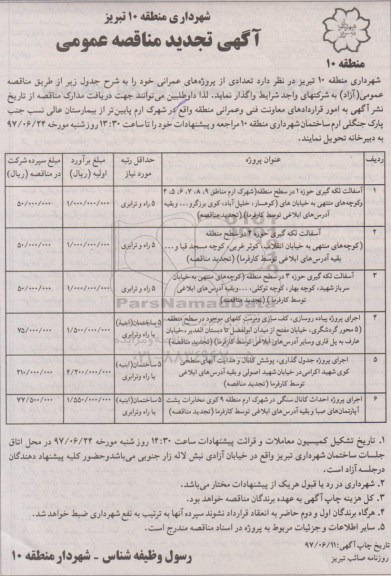 شهرداری منطقه ۱۰ تبریز
آگهی تجدید مناقصه عمومی
منطقه ۱۰
شهرداری منطقه ۱۰ تبریز در نظر دارد تعدادی از پروژه‌های عمرانی خود را به شرح جدول زیر از طریق مناقصه
عمومی(آزاد) به شرکتهای واجد شرایط واگذار نماید. لذا داوطلبین می‌توانند جهت دریافت مدارک مناقصه از تاریخ
نشر آگهی به امور قراردادهای معاونت فنی وعمرانی منطقه واقع در شهرک ارم پایین‌تر از بیمارستان عالی نسب جنب
پارک جنگلی ارم ساختمان شهرداری منطقه ۱۰ مراجعه و پیشنهادات خود را تا ساعت ۱۳:۳۰ روز شنبه مورخه ۹۷/۰۶/۲۴
به دبیرخانه تحویل نمایند.
ردیف عنوان پروژه حداقل رتبه مورد نیاز مبلغ برآورد اولیه (ریال) مبلغ سپرده شرکت در مناقصه (ریال)
۱ آسفالت لکه گیری حوزه ۱ در سطح منطقه(شهرک ارم مناطق ۹، ۸، ۷، ۶، ۵، ۴
وکوچه‌های منتهی به خیابان های (کوهسار، خلیل آباد، کوی برزگر و... وبقیه
آدرس‌های ابلاغی توسط کارفرما) (تجدید مناقصه)
۵ راه و ترابری ۱/۰۰۰/۰۰۰/۰۰۰ ۵۰/۰۰۰/۰۰۰
۲ آسفالت لکه گیری حوزه ۲ در سطح منطقه
(کوچه‌های منتهی به خیابان انقلاب، کوثر غربی، کوچه مسجد قبا و...
بقیه آدرس‌های ابلاغی توسط کارفرما) (تجدید مناقصه)
۵ راه وترابری ۱/۰۰۰/۰۰۰/۰۰۰ ۵۰/۰۰۰/۰۰۰
۳ آسفالت لکه گیری حوزه ۳ در سطح منطقه (کوچه‌های منتهی به خیابان
سرباز شهید، کوچه بهار، کوچه توکلی، ...وبقیه آدرس‌های ابلاغی
توسط کارفرما) (تجدید مناقصه)
۵ راه وترابری ۱/۰۰۰/۰۰۰/۰۰۰ ۵۰/۰۰۰/۰۰۰
۴ اجرای پروژه پیاده روسازی، کف سازی ومرمت کفهای موجود در سطح منطقه
(۵ محور گردشگری، خیابان مفتح از میدان ابوالفضل تا دبستان الغدیر و خیابان
عارف به پل قاری وسایر آدرس‌های ابلاغی توسط کارفرما) (تجدید مناقصه)
۵ ساختمان(ابنیه) یا راه وترابری ۱/۵۰۰/۰۰۰/۰۰۰ ۷۵/۰۰۰/۰۰۰
۵ اجرای پروژه جدول گذاری، پوشش کانال و هدایت آبهای سطحی
کوی شهید اکرامی در خیابان شهید اصولی و بقیه آدرس‌های ابلاغی
توسط کارفرما (تجدید مناقصه)
۵ ساختمان(ابنیه) یا راه وترابری ۴/۲۰۰/۰۰۰/۰۰۰ ۲۱۰/۰۰۰/۰۰۰
۶ اجرای پروژه احداث کانال سنگی در شهرک ارم منطقه ۹ کوی مخابرات پشت
آپارتمان‌های صبا و بقیه آدرس‌های ابلاغی توسط کارفرما (تجدید مناقصه)
۵ ساختمان(ابنیه) یا راه وترابری ۱/۵۵۰/۰۰۰/۰۰۰ ۷۷/۵۰۰/۰۰۰
۱. تاریخ تشکیل کمیسیون معاملات و قرائت پیشنهادات ساعت ۱۴:۳۰ روز شنبه مورخه ۹۷/۰۶/۲۴ در محل اتاق
جلسات ساختمان شهرداری تبریز واقع در خیابان آزادی نبش لاله زار جنوبی می‌باشدوحضور کلیه پیشنهاد دهندگان
درجلسه آزاد است.
۲. شهرداری در رد یا قبول هریک از پیشنهادات مختار می‌باشد.
۳. کل هزینه چاپ آگهی به عهده برندگان مناقصه خواهد بود.
۴. هرگاه برندگان اول و دوم حاضر به انعقاد قرارداد نشوند سپرده آنها به ترتیب به نفع شهرداری ضبط خواهد شد.
۵. سایر اطلاعات و جزئیات مربوط به پروژه در اسناد مناقصه مندرج است.
تاریخ چاپ آگهی: ۹۷/۰۶/۱۱
روزنامه صائب تبریز
رسول وظیفه شناس – شهردار منطقه ۱۰
ParsNamadData